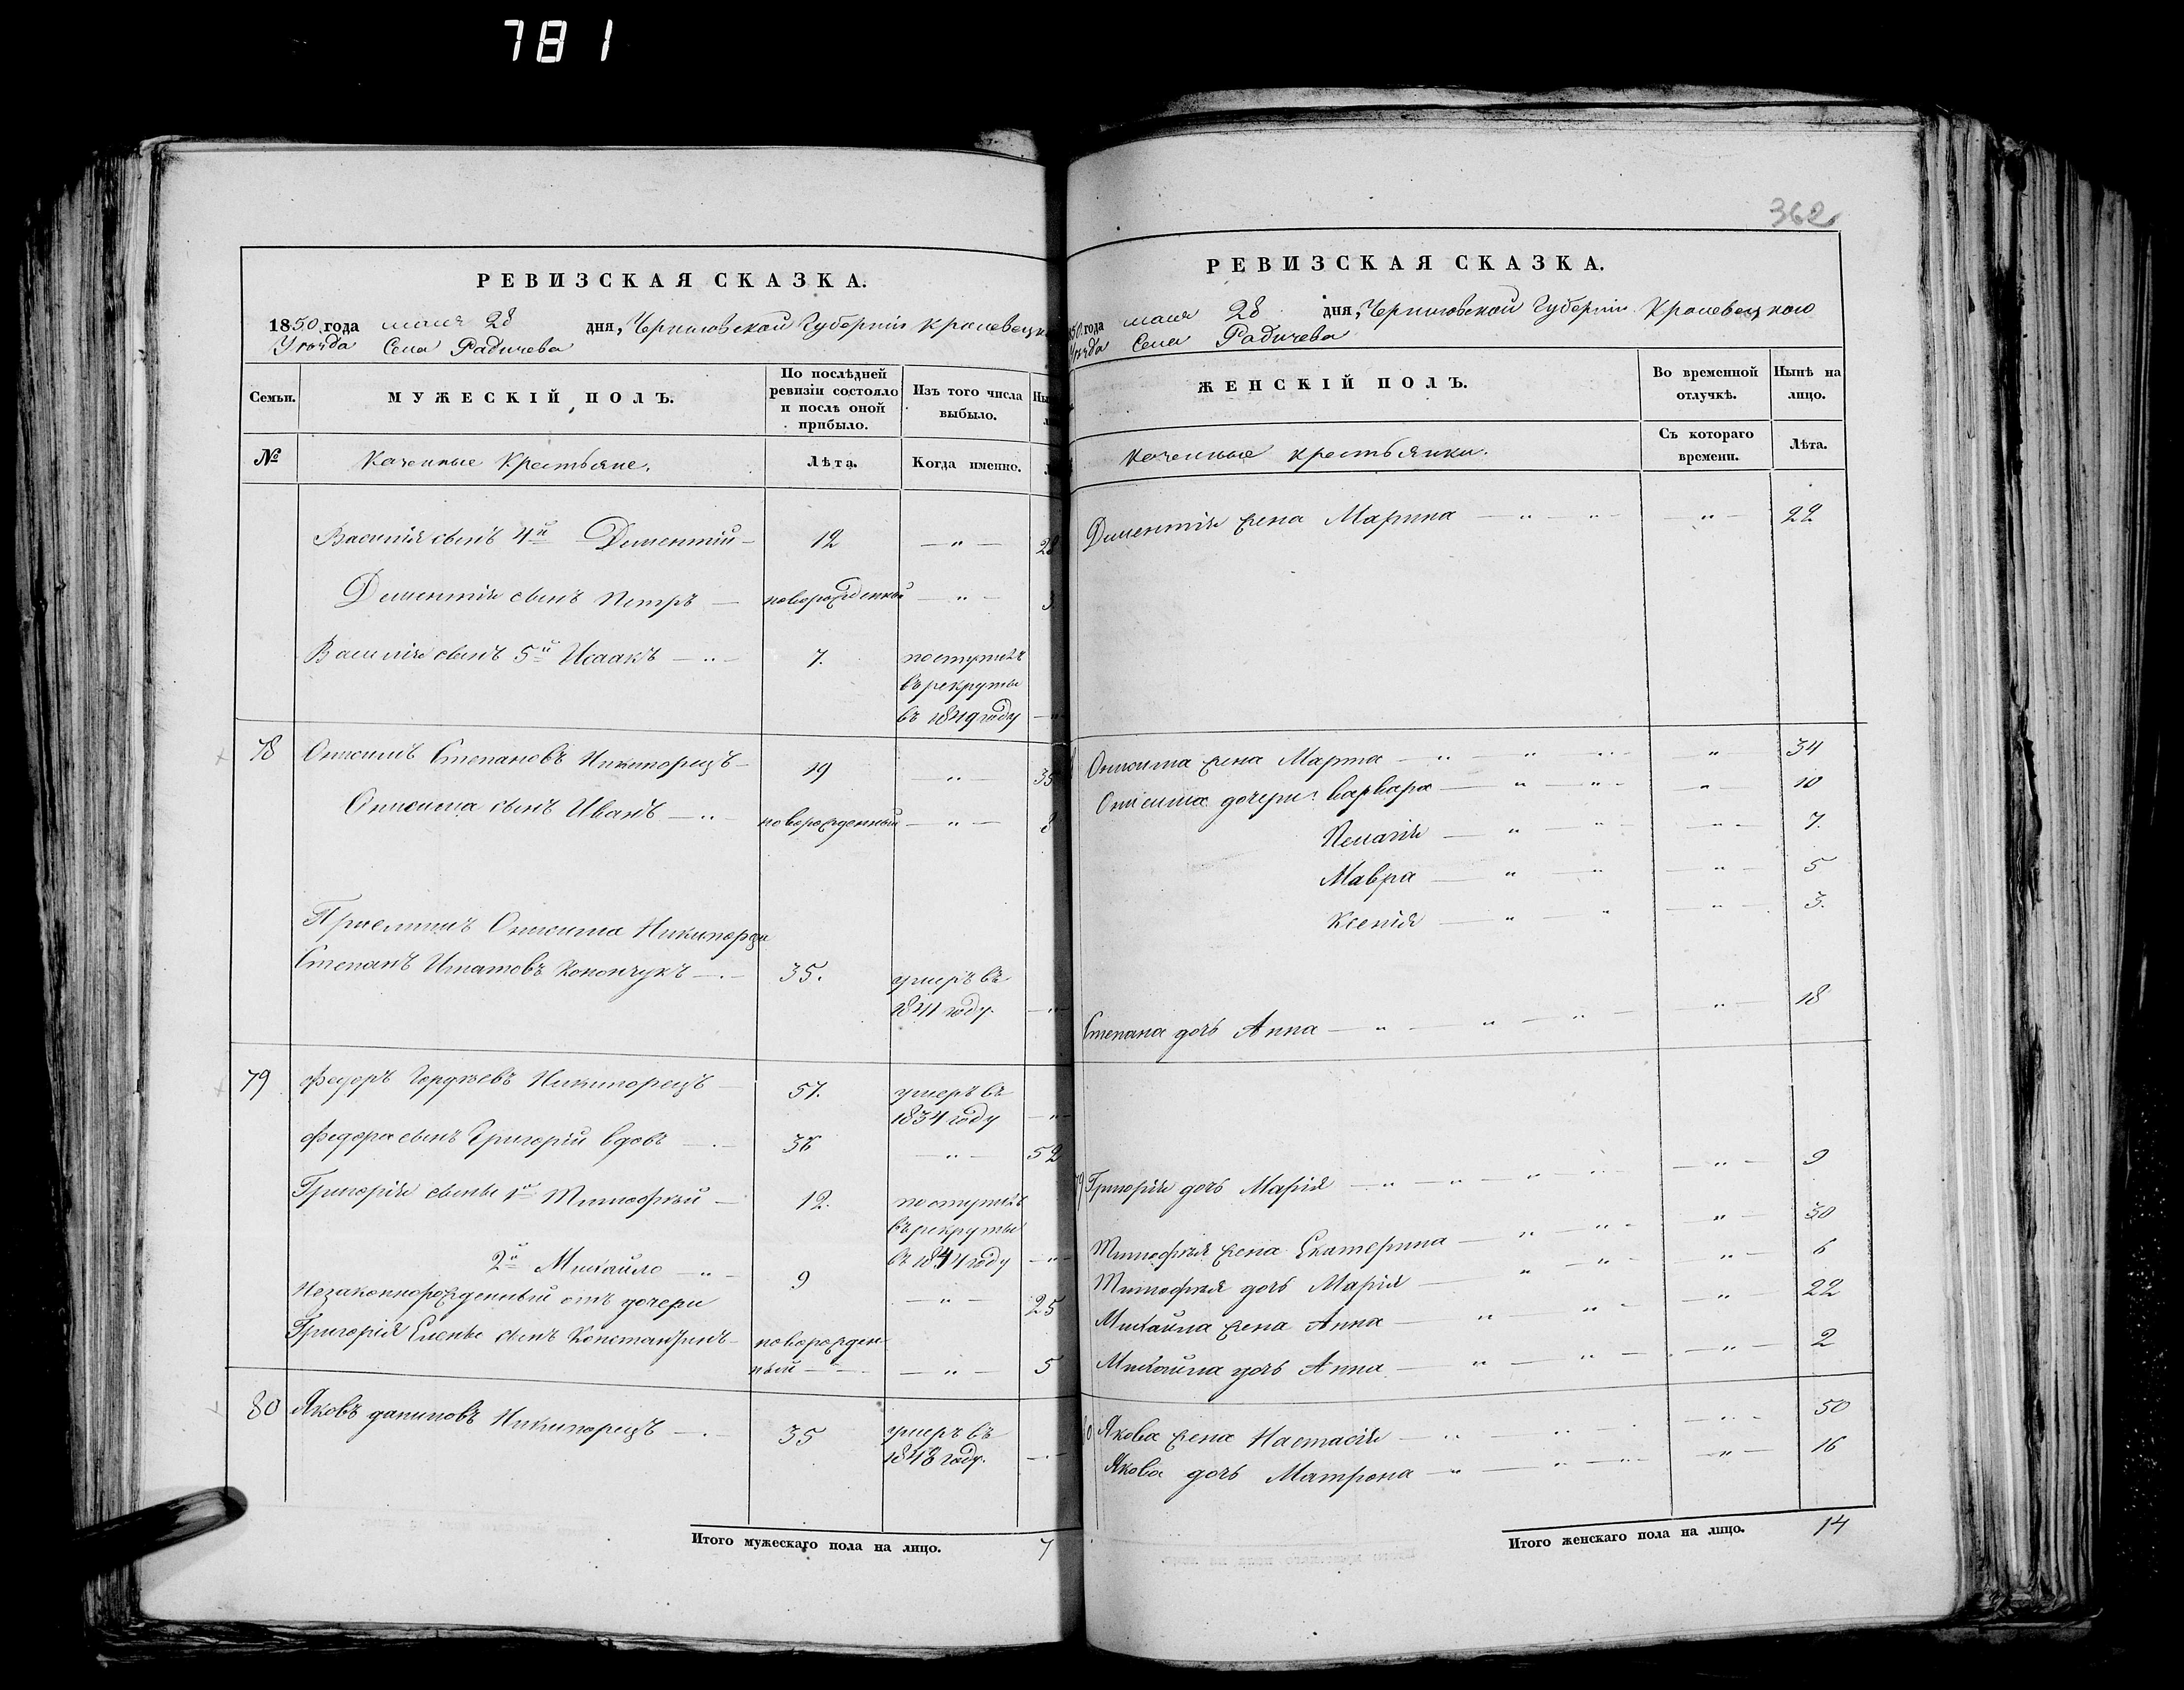 781
РЕВИЗСКАЯ СКАЗКА.
1850 года мая 28 дня, Черниговской Губернiи Кролевецк
Уѣзда Села Радичева
Семьи.
МУЖЕСКІЙ ПОЛЪ.
По послѣдней ревизіи состояло и послѣ оной прибыло.
Изъ того числа выбыло.
№
Казенные Крестьяне.
Лѣта.
Когда именно.
Василія сынъ 4й Дементій — 12 — " — 28
Дементія сынъ Петръ — новорожденный — " — 3.
Василія сынъ 5й Исаакъ — " — 7. поступилъ
въ рекруты
въ 1849 году — "
78 Онисимъ Степановъ Никипорецъ — 19 " — 35
Онисима сынъ Иванъ — " — новорожденный — " — 8
Пріемышъ Онисима Никипорца
Степанъ Игнатовъ Конончукъ — " — 35. умеръ въ
1841 году. — " —
79 Федоръ Гордѣевъ Никипорецъ — 57. умеръ въ
1834 году — " —
Федора сынъ Григорій вдовъ — " — 36 — " — 52
Григорія сыны 1й Тимофѣй — 12. поступилъ
въ рекруты
въ 1844 году — " —
2й Михайло — " — 9 — " — 25
Незаконнорожденный отъ дочери
Григорія Елены сынъ Константинъ — новорожден
ный — " — — " — 5
80 Яковъ Даниловъ Никипорецъ — " — 35 умеръ въ
1848 году. — " —
Итого мужескаго пола на лицо. 7
362
РЕВИЗСКАЯ СКАЗКА.
850 года мая 28 дня, Черниговской Губернiи Кролевецкого
Уѣзда Села Радичева
ЖЕНСКІЙ ПОЛЪ.
Во временной отлучкѣ.
Нынѣ на лицо.
Казенные крестьянки.
Съ котораго времени.
Лѣта.
Дементія жена Марина — " — " — " — 22
Онисима жена Марта — " — " — " — " 34
Онисима дочери: Варвара — " — " — " 10
Пелагія — " — " — " — 7.
Мавра — " — " — " — 5
Ксенія — " — " — " — 3.
Степана дочь Анна — " — " — " — " — 18
79 Григорія дочь Марія — " — " — " — " — " — 9
Тимофѣя жена Екатерина — " — " — " — 30
Тимофѣя дочь Марія — " — " — " — 6
Михайла жена Анна — " — " — " — 22
Михайла дочь Анна — " — " — " — 2
Якова жена Настасія — " — " — " — 50
Якова дочь Матрона — " — " — " — " — 16
Итого женскаго пола на лицо. 14